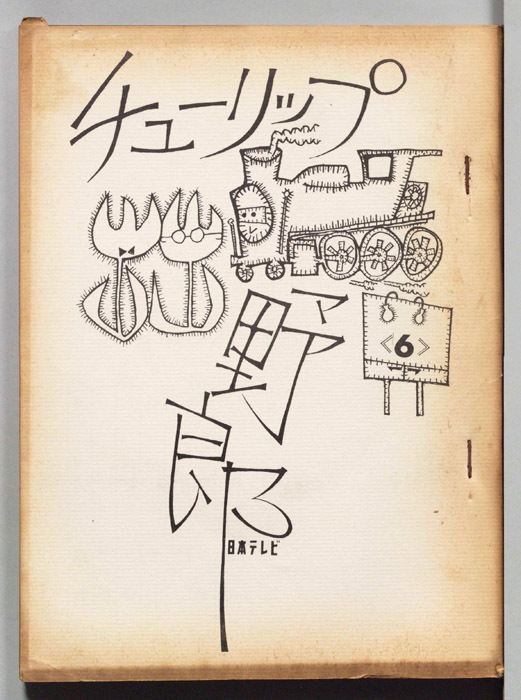 チューリップ
野郎
《6》
日本テレビ